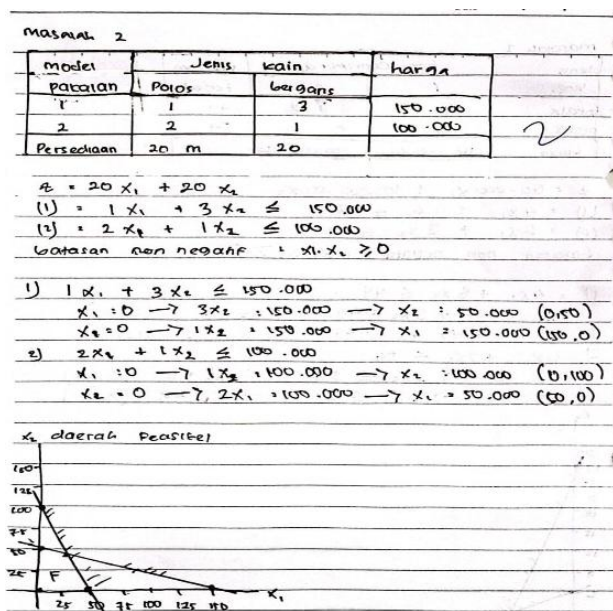 Masalah 2
model pakaian Jenis kain harga
Polos bergaris
1 1 3 150.000
2 2 1 100.000
Persediaan 20 m 20
2
z = 20 x₁ + 20 x₂
(1) = 1 x₁ + 3 x₂ ≤ 150.000
(2) = 2 x₁ + 1 x₂ ≤ 100.000
batasan non negatif = x₁. x₂ ≥ 0
1) 1 x₁ + 3 x₂ ≤ 150.000
x₁ = 0 → 3x₂ = 150.000 → x₂ = 50.000 (0,50)
x₂ = 0 → 1x₂ = 150.000 → x₁ = 150.000 (150,0)
2) 2x₁ + 1x₂ ≤ 100.000
x₁ = 0 → 1x₂ = 100.000 → x₂ = 100.000 (0,100)
x₂ = 0 → 2x₁ = 100.000 → x₁ = 50.000 (50,0)
x₂ daerah feasibel
150
125
100
75
50
25 F
25 50 75 100 125 150 x₁